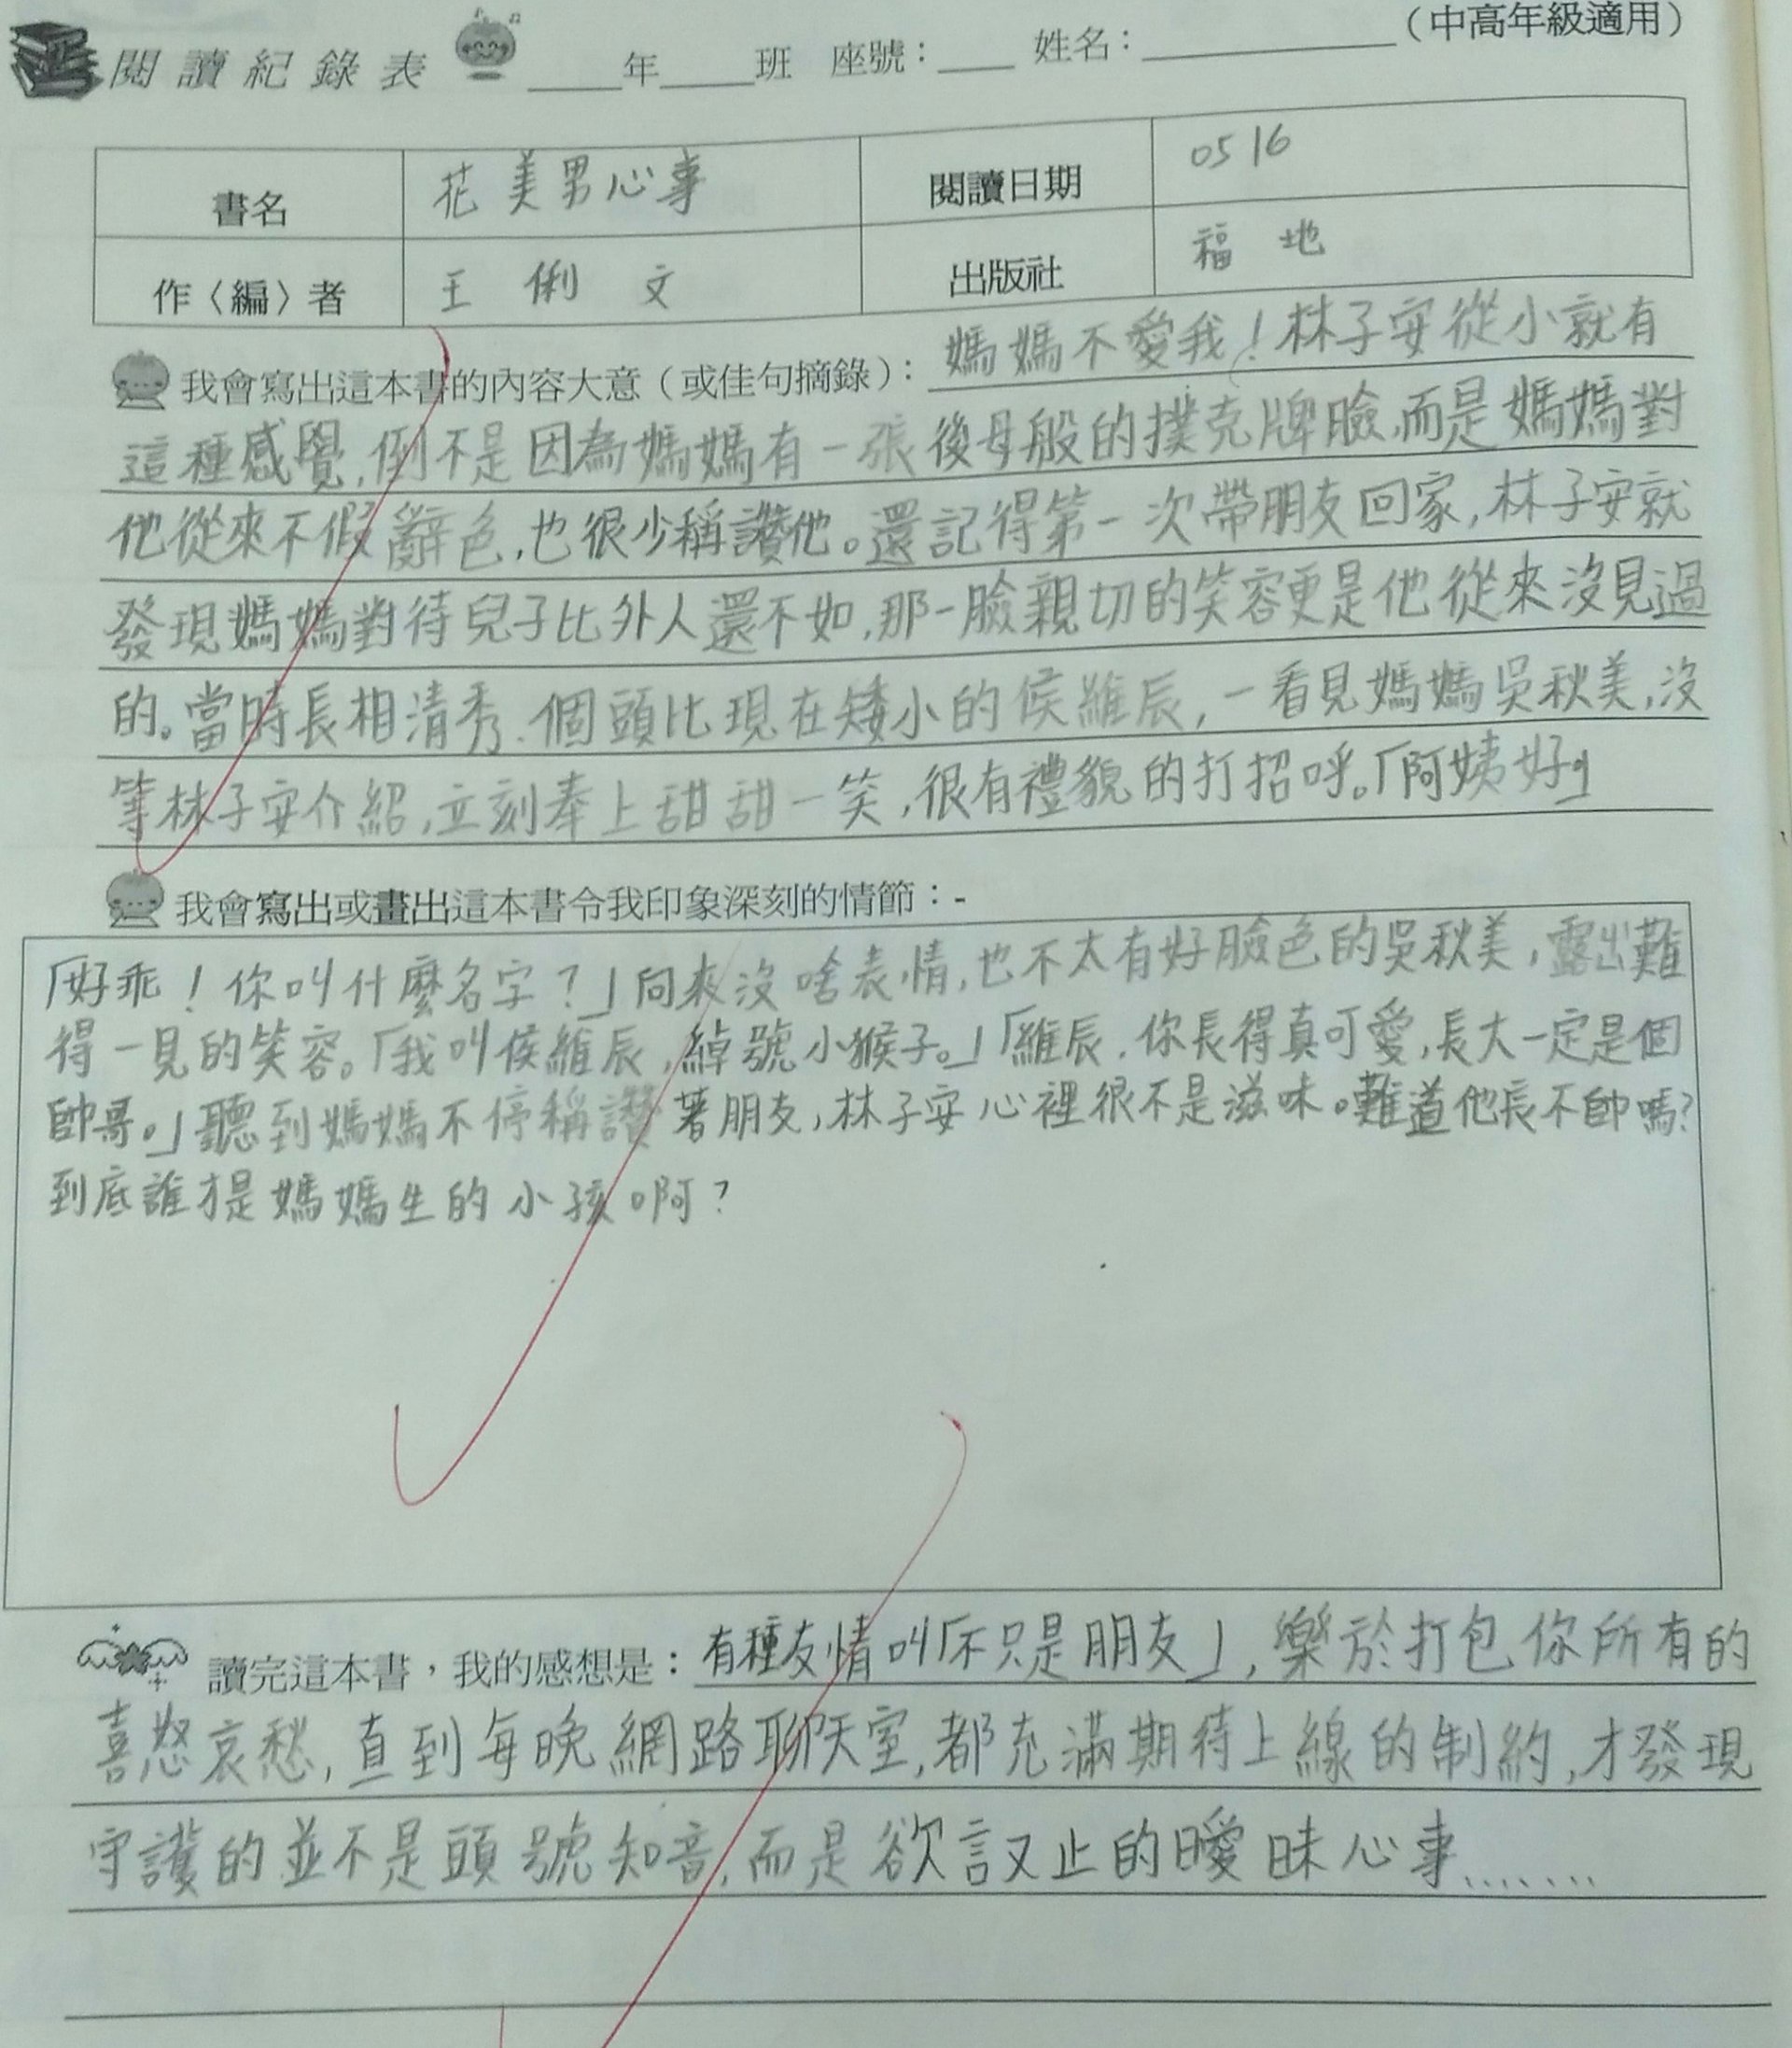 閱讀紀錄表 ____年____班 座號：____ 姓名：__________（中高年級適用）
書名 花美男心事 閱讀日期 0516
作〈編〉者 王俐文 出版社 福地
我會寫出這本書的內容大意（或佳句摘錄）：媽媽不愛我！林子安從小就有
這種感覺，倒不是因為媽媽有一張後母般的撲克牌臉，而是媽媽對
他從來不假辭色，也很少稱讚他。還記得第一次帶朋友回家，林子安就
發現媽媽對待兒子比外人還不如，那一臉親切的笑容更是他從來沒見過
的。當時長相清秀、個頭比現在矮小的侯維辰，一看見媽媽吳秋美，沒
等林子安介紹，立刻奉上甜甜一笑，很有禮貌的打招呼。「阿姨好」
我會寫出或畫出這本書令我印象深刻的情節：-
「好乖！你叫什麼名字？」向來沒啥表情，也不太有好臉色的吳秋美，露出難
得一見的笑容。「我叫侯維辰，綽號小猴子。」「維辰，你長得真可愛，長大一定是個
帥哥。」聽到媽媽不停稱讚著朋友，林子安心裡很不是滋味。難道他長不帥嗎？
到底誰才是媽媽生的小孩啊？
讀完這本書，我的感想是：有種友情叫「不只是朋友」，樂於打包你所有的
喜怒哀愁，直到每晚網路聊天室，都充滿期待上線的制約，才發現
守護的並不是頭號知音，而是欲言又止的曖昧心事.......